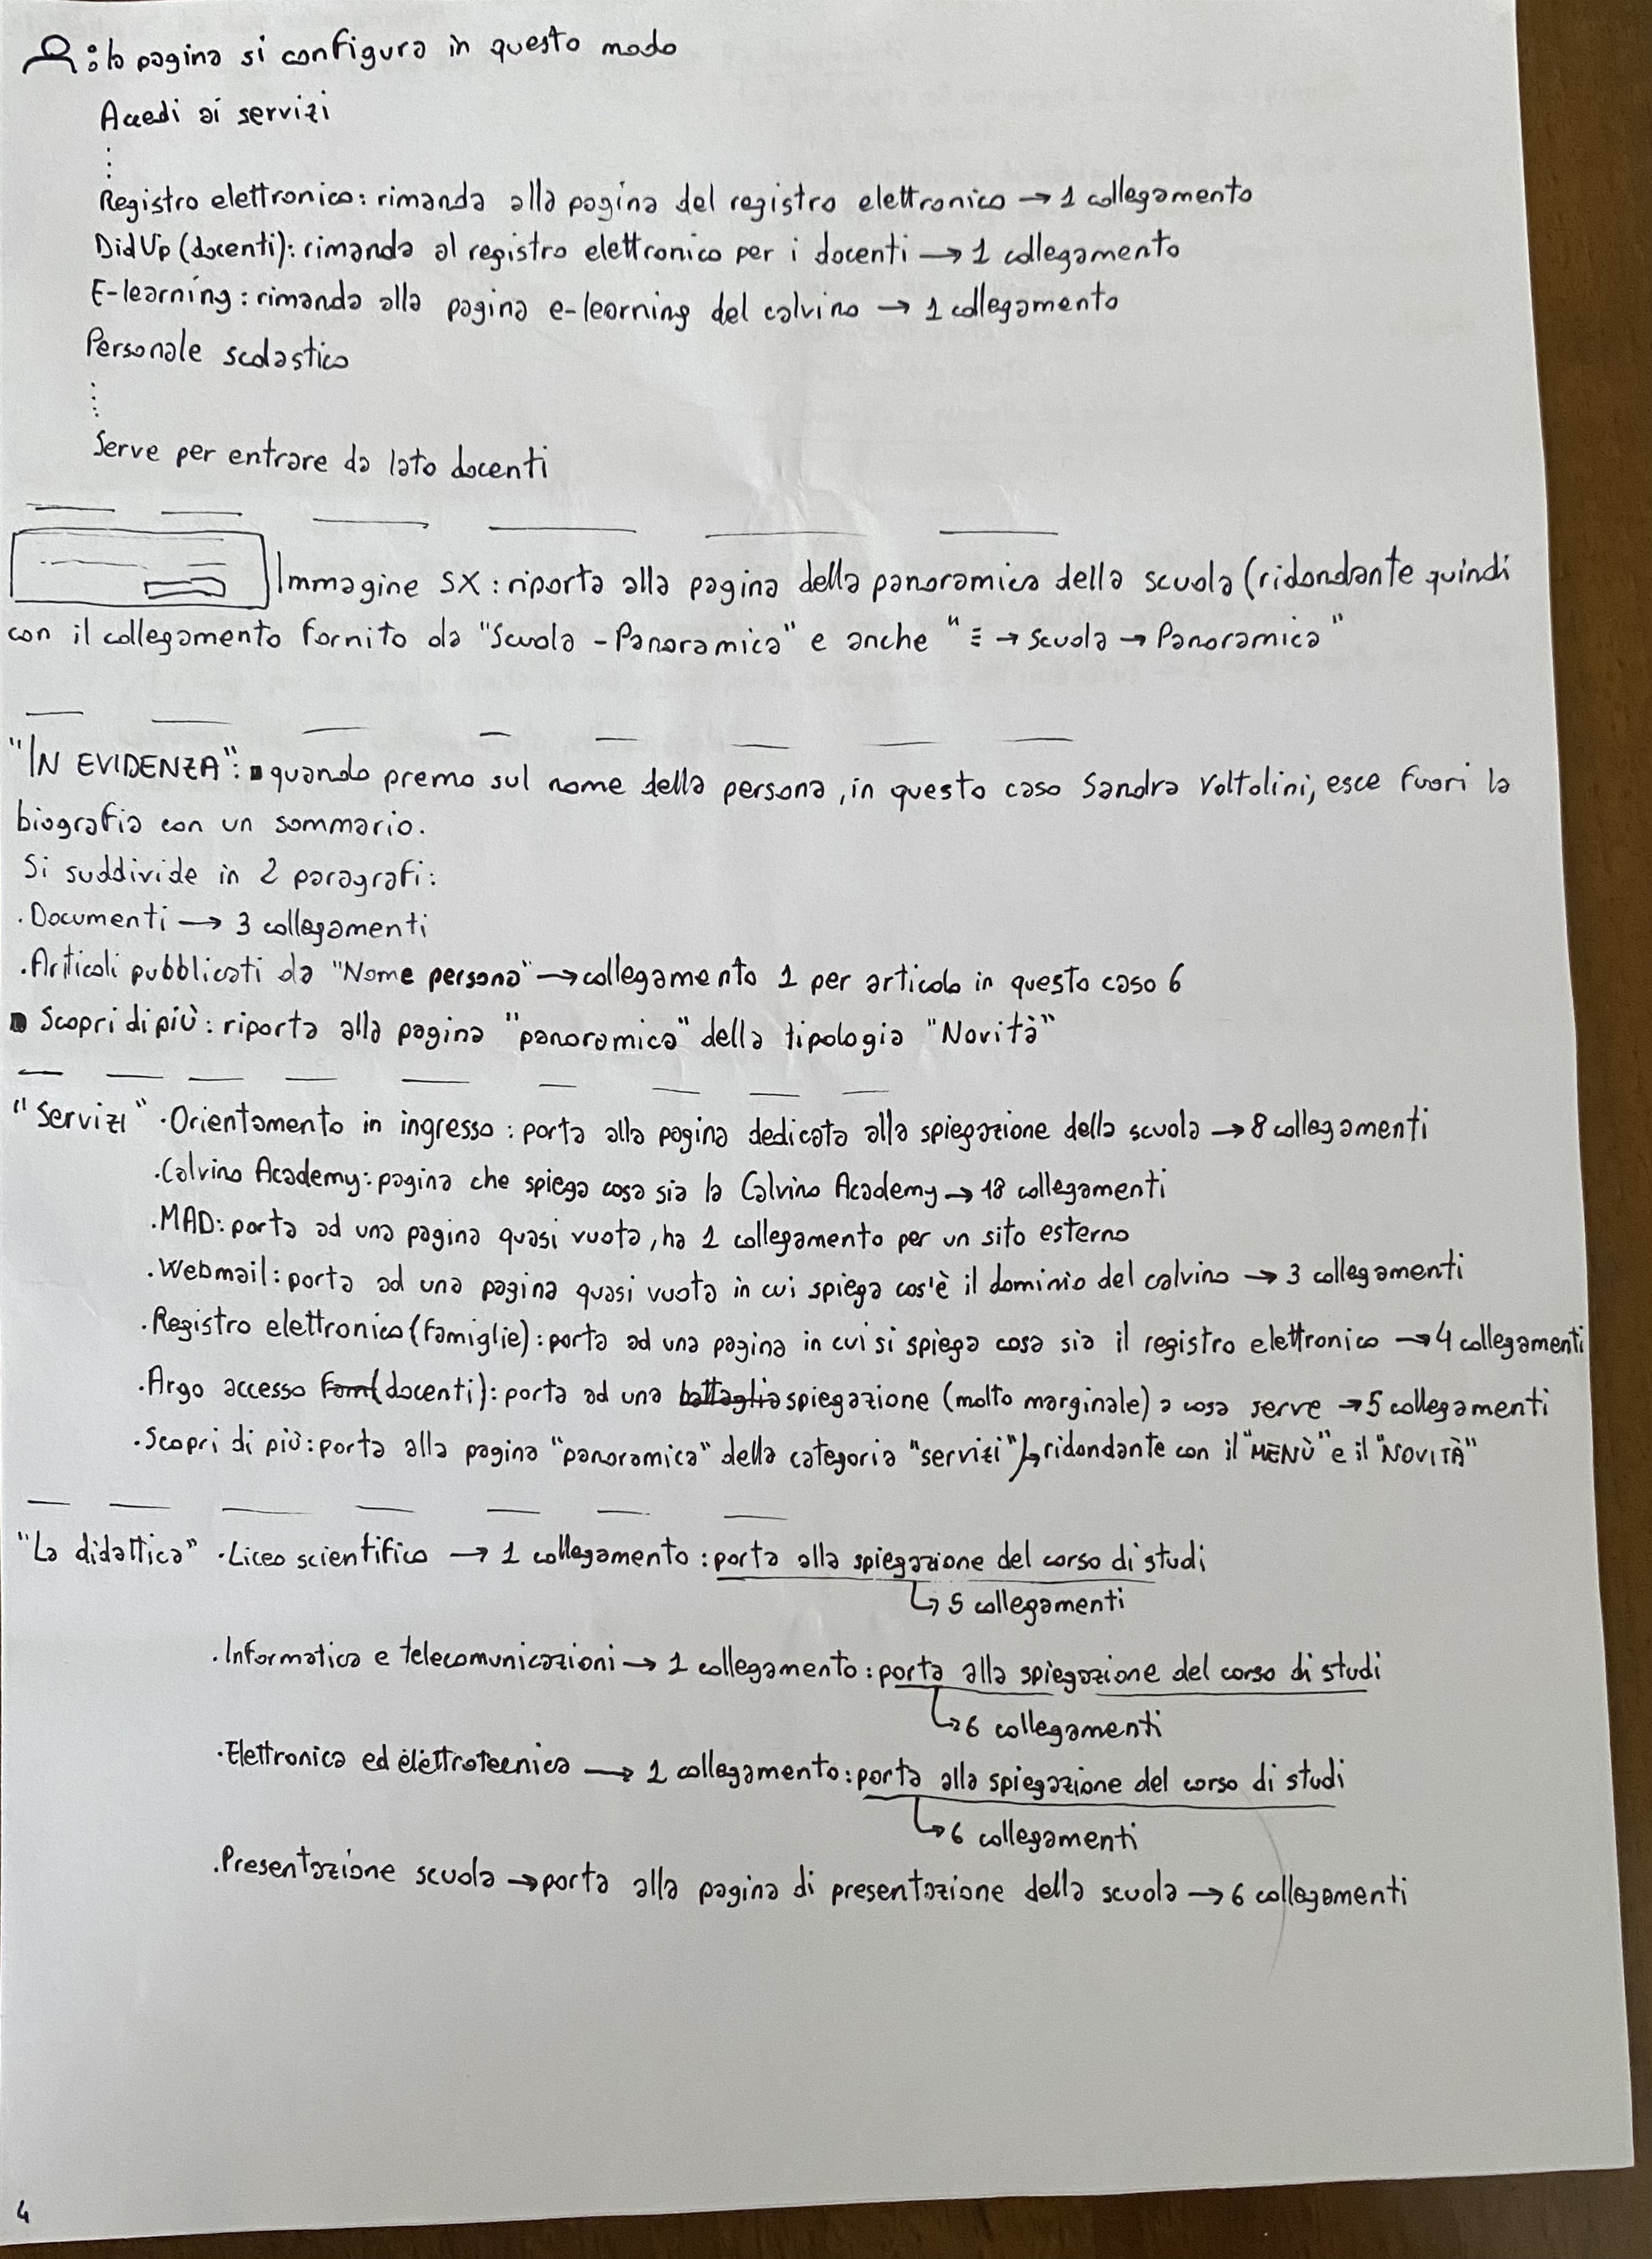 : la pagina si configura in questo modo
Accedi ai servizi
Registro elettronico: rimanda alla pagina del registro elettronico → 1 collegamento
DidUp (docenti): rimanda al registro elettronico per i docenti → 1 collegamento
E-learning: rimanda alla pagina e-learning del calvino → 1 collegamento
Personale scolastico
Serve per entrare da lato docenti
Immagine SX: riporta alla pagina della panoramica della scuola (ridondante quindi
con il collegamento fornito da "Scuola - Panoramica" e anche "≡ → Scuola → Panoramica"
"IN EVIDENZA": quando premo sul nome della persona, in questo caso Sandra Voltolini, esce fuori la
biografia con un sommario.
Si suddivide in 2 paragrafi:
. Documenti → 3 collegamenti
. Articoli pubblicati da "Nome persona" → collegamento 1 per articolo in questo caso 6
Scopri di più: riporta alla pagina "panoramica" della tipologia "Novità"
"Servizi" · Orientamento in ingresso: porta alla pagina dedicata alla spiegazione della scuola → 8 collegamenti
· Calvino Academy: pagina che spiega cosa sia la Calvino Academy → 18 collegamenti
. MAD: porta ad una pagina quasi vuota, ha 1 collegamento per un sito esterno
. Webmail: porta ad una pagina quasi vuota in cui spiega cos'è il dominio del calvino → 3 collegamenti
. Registro elettronico (famiglie): porta ad una pagina in cui si spiega cosa sia il registro elettronico → 4 collegamenti
. Argo accesso Fam (docenti): porta ad una battaglia spiegazione (molto marginale) a cosa serve → 5 collegamenti
· Scopri di più: porta alla pagina "panoramica" della categoria "servizi") ↳ ridondante con il "MENÙ" e il "NOVITÀ"
"La didattica" · Liceo scientifico → 1 collegamento: porta alla spiegazione del corso di studi
↳ 5 collegamenti
. Informatica e telecomunicazioni → 1 collegamento: porta alla spiegazione del corso di studi
↳ 6 collegamenti
· Elettronica ed elettrotecnica → 1 collegamento: porta alla spiegazione del corso di studi
↳ 6 collegamenti
. Presentazione scuola → porta alla pagina di presentazione della scuola → 6 collegamenti
4